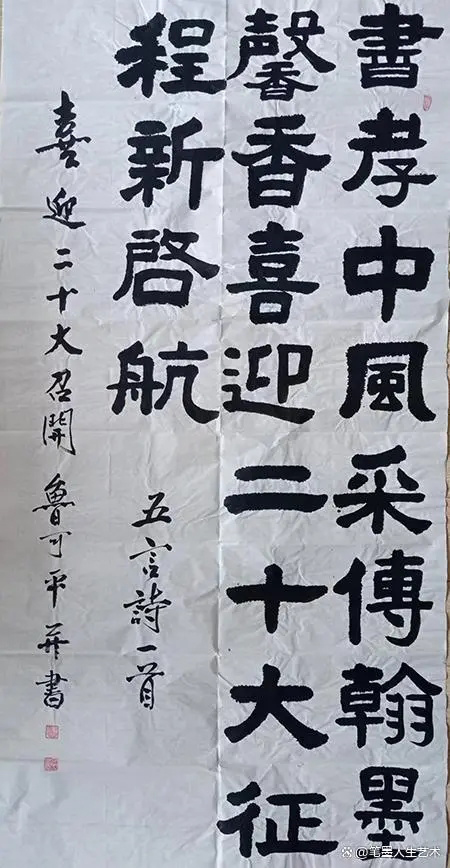 書孝中風采傳翰墨
馨香喜迎二十大征
程新啓航
五言詩一首
喜迎二十大召開魯可平并書
笔墨人生艺术